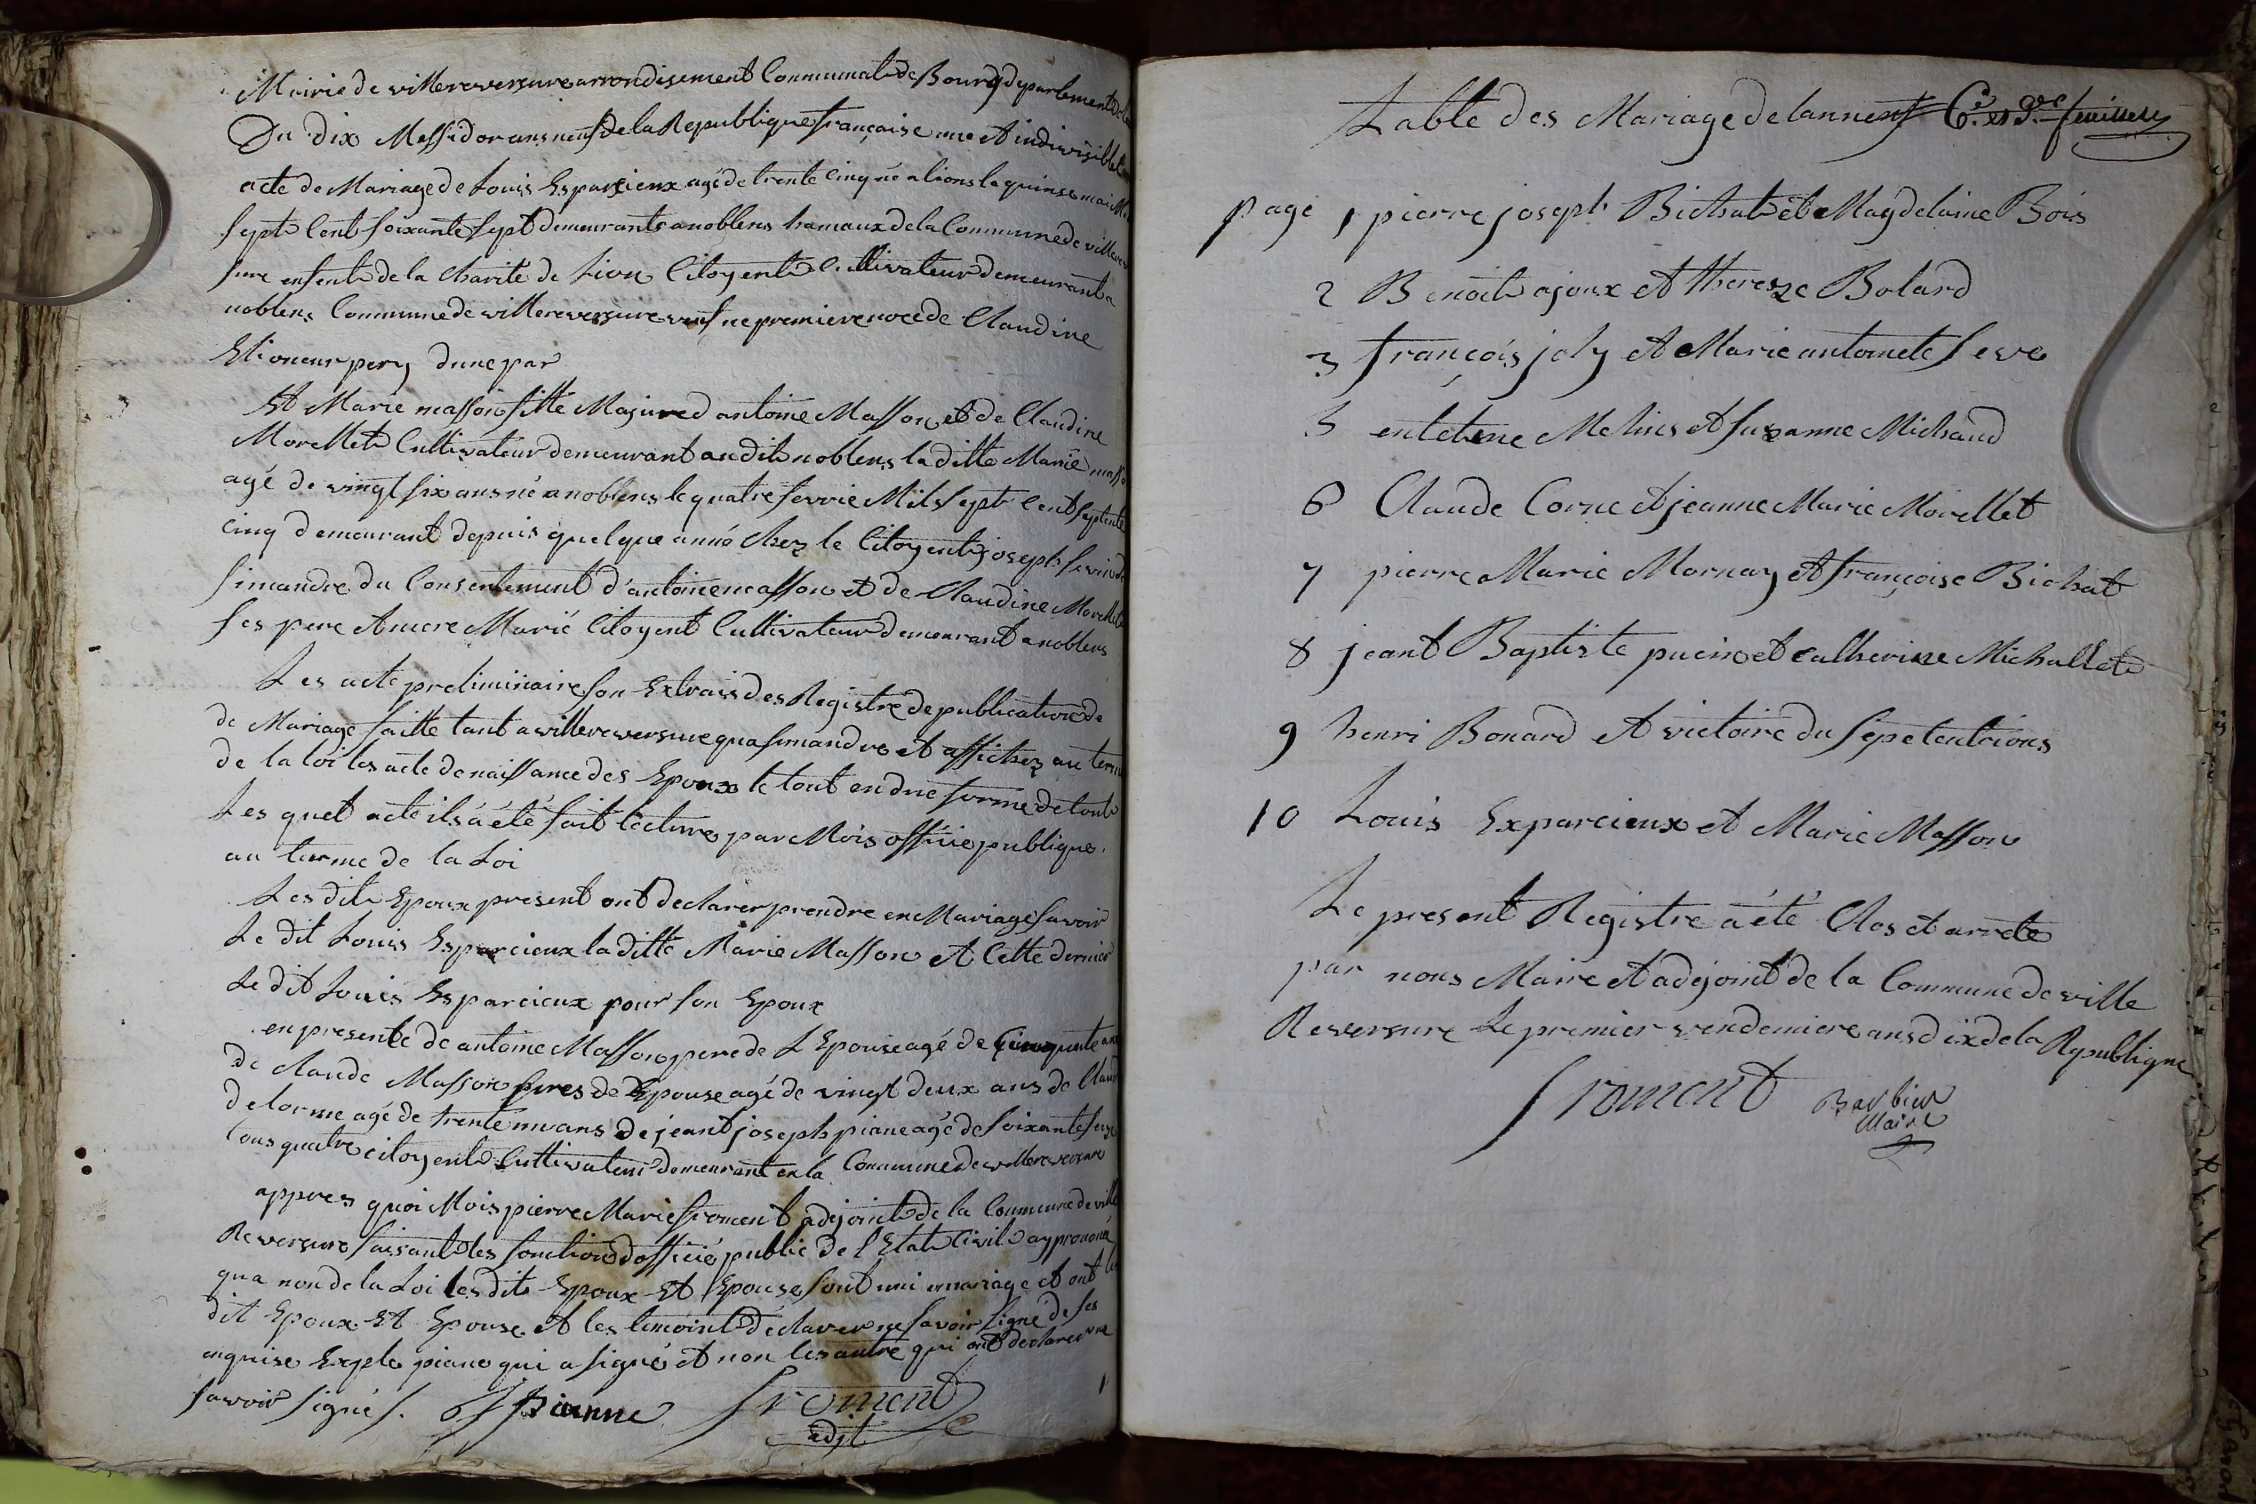 Mairie de villereversure arrondisement Communale de Bourg departement de
Du dix Messidor ans neuf de la Republique française une et indivisible
acte de Mariage de Louis Esparcieux agé de trente Cinq né a lions le quinse mai
Sept Cent Soixante Sept demeurante a noblens hamaux de la Commune de
sure enfent de la Charité de Lion Citoyent Cultivateur demeurant a
noblens Commune de villereversure veuf ne premiere noce de Claudine
dune par
Et Marie masson fille Majure d antoine Masson et de Claudine
Morellet Cultivateur demeurant audit noblens la ditte Marie
agé de vingt six ans né a noblens le quatre fevrie Mil Sept Cent Septente
Cinq demeurant depuis quelque anné chez le Citoyent joseph
Simandre du Consentement d'antoine masson et de Claudine Morellet
Ses pere et mere Marié Citoyent Cultivateur demeurant a noblens
Les acte preliminaire son Extrais des Registre de publication de
de Mariage faitte tant a villereversure qua simandre et affichez au
de la loi les acte de naissance des Epoux le tout en due forme de tout
Les quel acte ils a été fait lecture par Mois officié publique
au terme de la Loi
Les dit Epoux present ont declarer prendre en Mariage Savoir
Le dit Louis Esparcieux la ditte Marie Masson et Cette dernier
Le dit Louis Esparcieux pour son Epoux
en presente de antoine Masson pere de L Epouse agé de Cinquente
de claude Masson freres de Epouse agé de vingt deux ans de
delorme agé de trente un ans de jeant joseph piane agé de soixante
tous quatre citoyent Cultivateur demeurant en la Commune de villereversure
appres quoi Mois pierre Marie froment adejoint de la Commune de
Reversure faisant les fonction d officié public de l Etat Civil ay prononcé
qua non de la Loi les dits Epoux Et Epouse sont uni en mariage et ont
dit Epoux Et Epouse et les temoint déclarer ne savoir signé de ses
enquise Expte piane qui a signé et non les autre qui ont declarer
savoir signé
pianne froment
adjt
Table des Mariage de lannee
page 1 pierre joseph Bichat et Magdelaine Bois
2 Benoit ajoux et therese Bolard
3 françois joly et Marie antoinete seve
5 Melins et Suzanne Michaud
6 Claude Corne et jeanne Marie Morellet
7 pierre Marie Mornay et françoise Bichat
8 jeant Baptiste et catherine Michallet
9 henri Bonard et victoire du Sepetentrions
10 Louis Exparcieux et Marie Masson
Le present Registre a été Clos et arrete
par nous Maire et adejoint de la Commune de ville
Reversure Le premier vendemiere ans dix de la Republique
froment Barbier
Maire